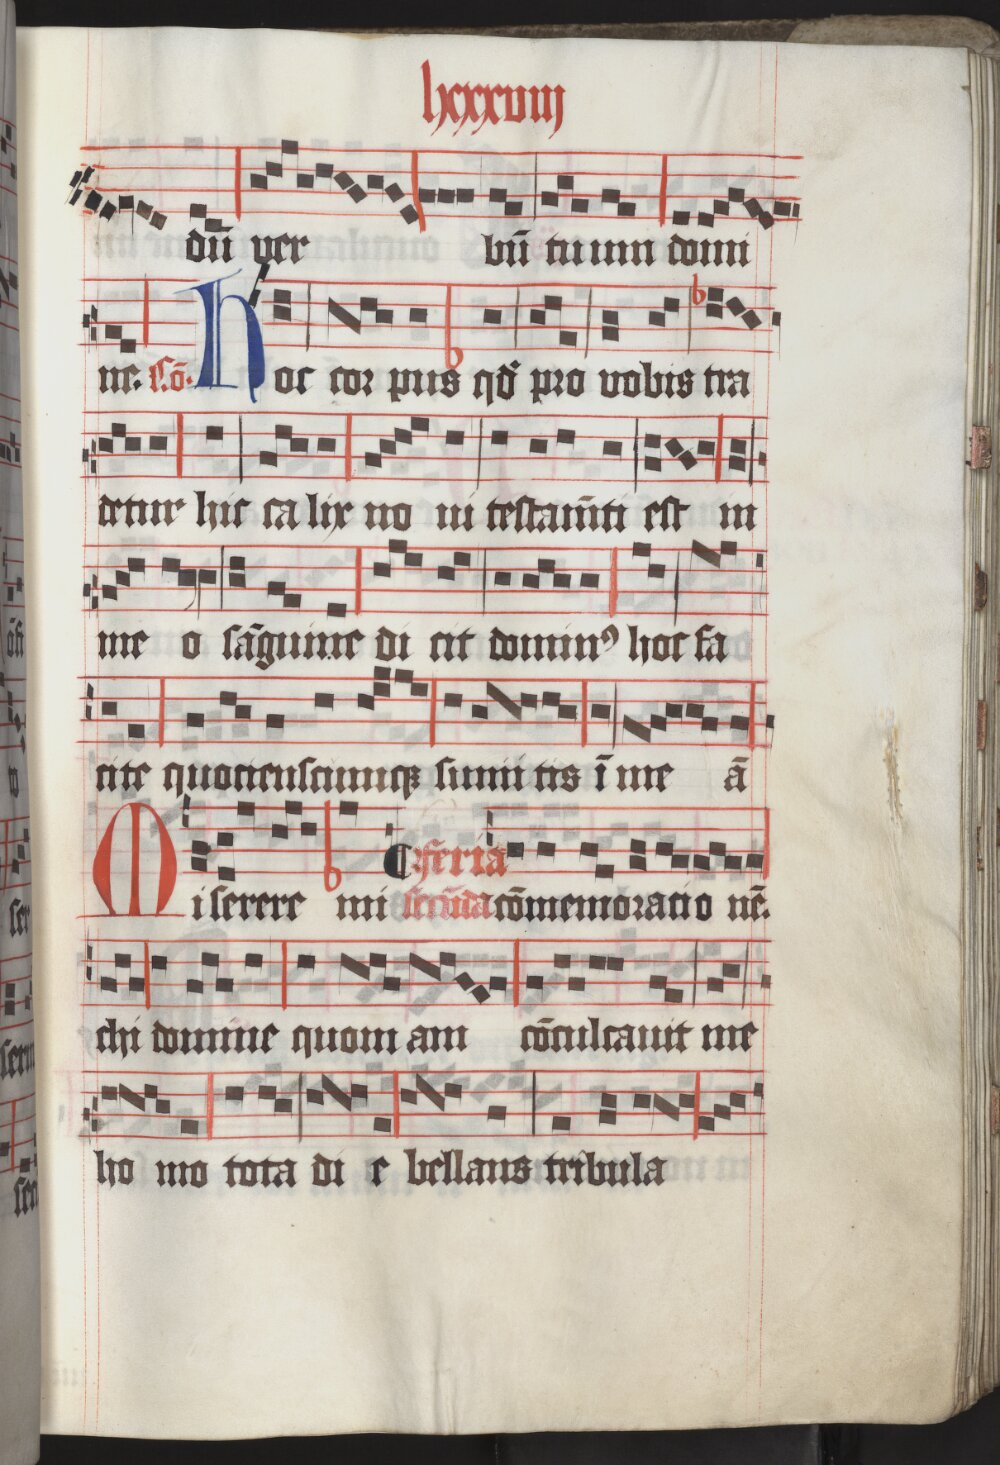 lxxxviij
dū ver bū tu um domi
ne. Cō. Hoc cor pus qd̄ pro vobis tra
detur hic ca lix no ui testam̄ti est in
me o sāguine di cit dominꝰ hoc fa
cite quociēscumqꝫ sumi tis ī me ā
Miserere mi feria secūda cōmemoracio nē.
chi domine quoni am cōculcauit me
ho mo tota di e bellans tribula